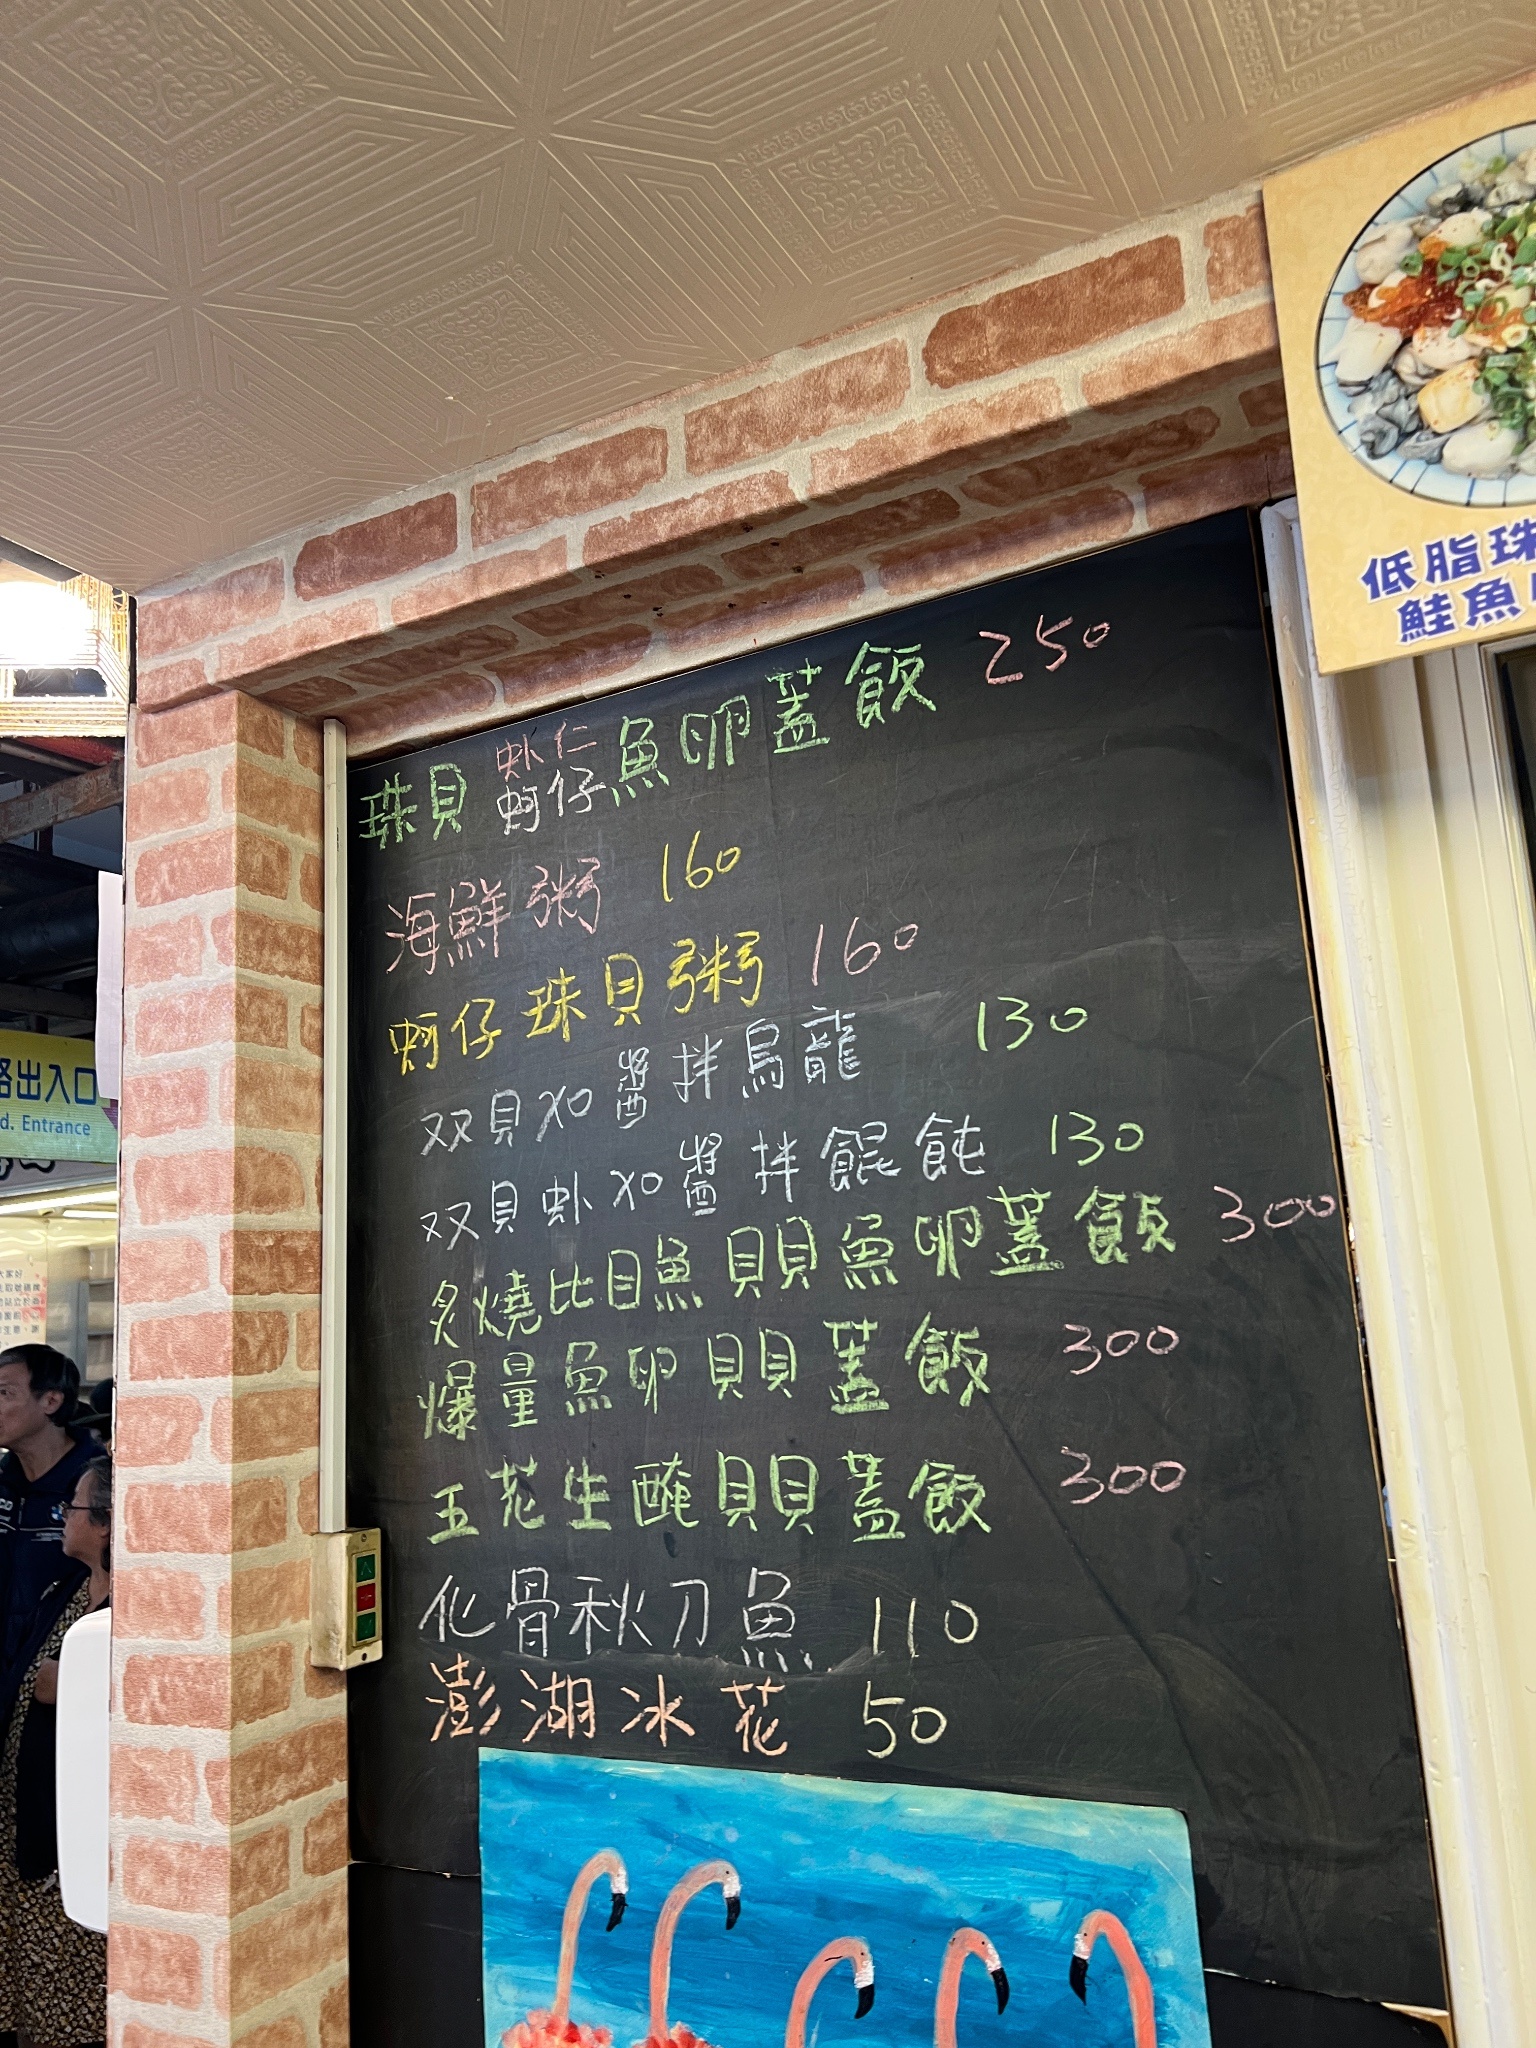 低脂珠
鮭魚
珠貝 虾仁 蚵仔 魚卵蓋飯 250
海鮮粥 160
蚵仔珠貝粥 160
双貝XO醬拌烏龍 130
双貝虾XO醬拌餛飩 130
炙燒比目魚貝貝魚卵蓋飯 300
爆量魚卵貝貝蓋飯 300
五花生醃貝貝蓋飯 300
化骨秋刀魚 110
澎湖冰花 50
路出入口
d. Entrance